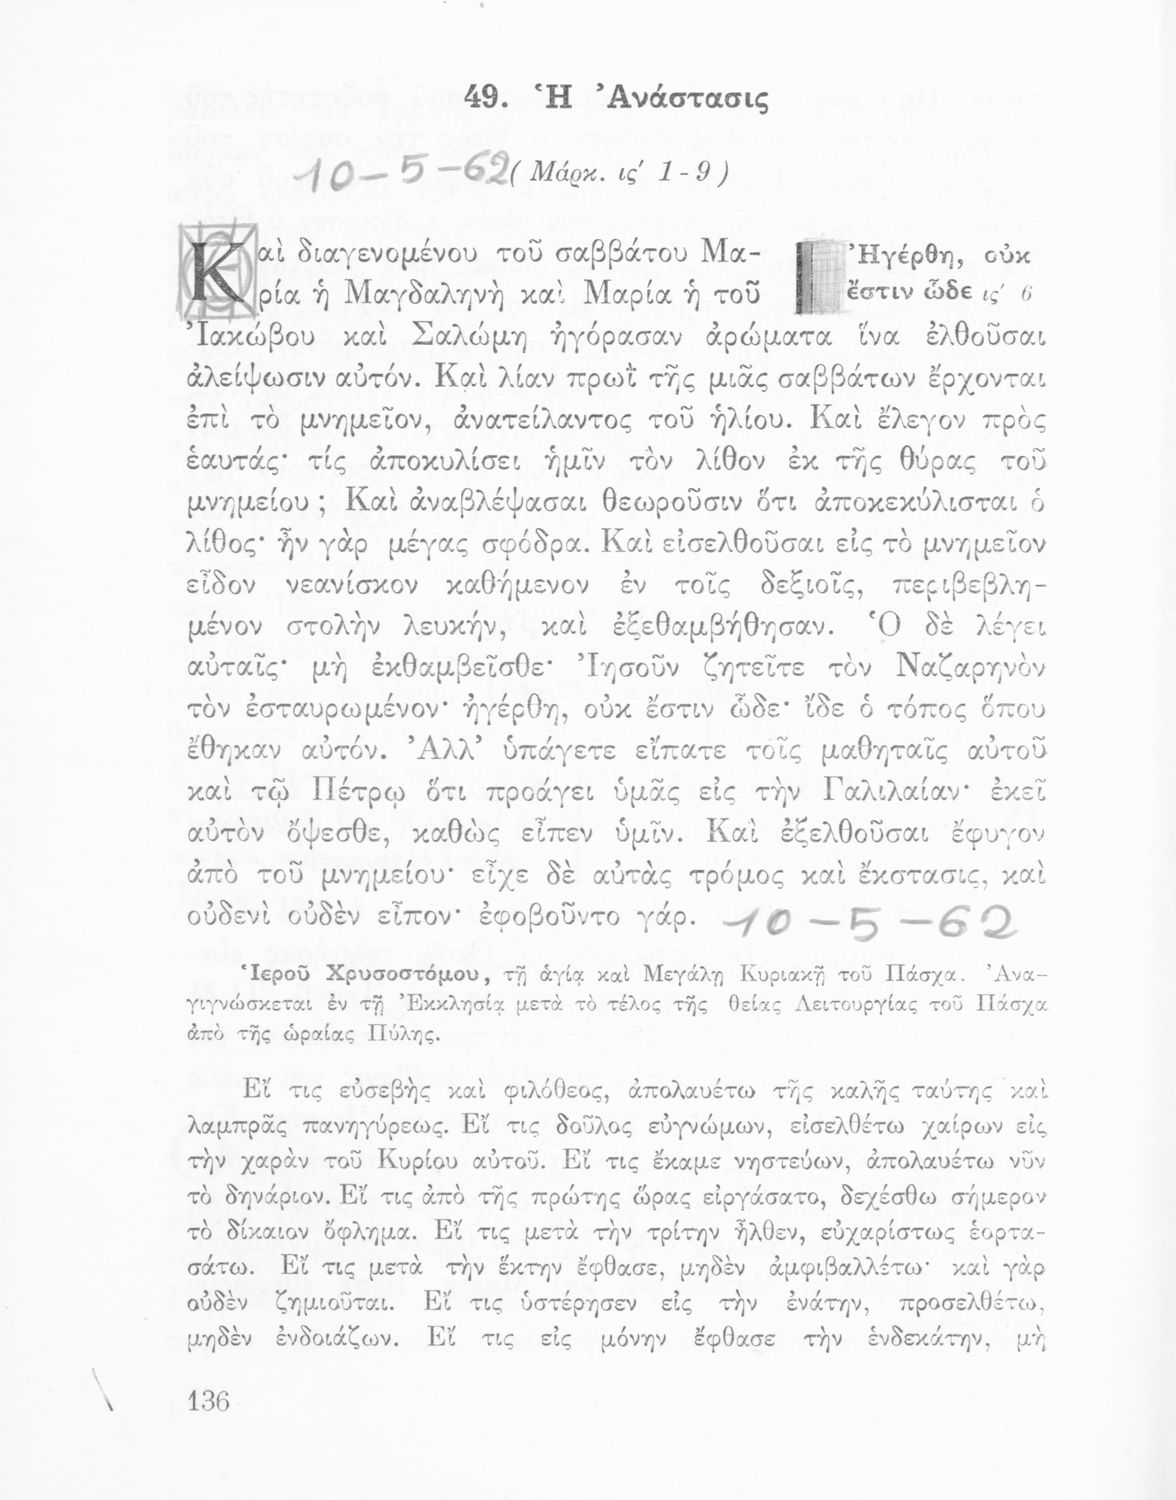 49. Ἡ Ἀνάστασις
10-5-62 (Μάρκ. ις΄ 1-9)
Καὶ διαγενομένου τοῦ σαββάτου Μα-
ρία ἡ Μαγδαληνὴ καὶ Μαρία ἡ τοῦ
Ἠγέρθη, οὐκ
ἔστιν ὧδε ις΄ 6
Ἰακώβου καὶ Σαλώμη ἠγόρασαν ἀρώματα ἵνα ἐλθοῦσαι
ἀλείψωσιν αὐτόν. Καὶ λίαν πρωῒ τῆς μιᾶς σαββάτων ἔρχονται
ἐπὶ τὸ μνημεῖον, ἀνατείλαντος τοῦ ἡλίου. Καὶ ἔλεγον πρὸς
ἑαυτάς· τίς ἀποκυλίσει ἡμῖν τὸν λίθον ἐκ τῆς θύρας τοῦ
μνημείου ; Καὶ ἀναβλέψασαι θεωροῦσιν ὅτι ἀποκεκύλισται ὁ
λίθος· ἦν γὰρ μέγας σφόδρα. Καὶ εἰσελθοῦσαι εἰς τὸ μνημεῖον
εἶδον νεανίσκον καθήμενον ἐν τοῖς δεξιοῖς, περιβεβλη-
μένον στολὴν λευκήν, καὶ ἐξεθαμβήθησαν. Ὁ δὲ λέγει
αὐταῖς· μὴ ἐκθαμβεῖσθε· Ἰησοῦν ζητεῖτε τὸν Ναζαρηνὸν
τὸν ἐσταυρωμένον· ἠγέρθη, οὐκ ἔστιν ὧδε· ἴδε ὁ τόπος ὅπου
ἔθηκαν αὐτόν. Ἀλλ’ ὑπάγετε εἴπατε τοῖς μαθηταῖς αὐτοῦ
καὶ τῷ Πέτρῳ ὅτι προάγει ὑμᾶς εἰς τὴν Γαλιλαίαν· ἐκεῖ
αὐτὸν ὄψεσθε, καθὼς εἶπεν ὑμῖν. Καὶ ἐξελθοῦσαι ἔφυγον
ἀπὸ τοῦ μνημείου· εἶχε δὲ αὐτὰς τρόμος καὶ ἔκστασις, καὶ
οὐδενὶ οὐδὲν εἶπον· ἐφοβοῦντο γάρ. 10-5-62
Ἱεροῦ Χρυσοστόμου, τῇ ἁγίᾳ καὶ Μεγάλῃ Κυριακῇ τοῦ Πάσχα. Ἀνα-
γιγνώσκεται ἐν τῇ Ἐκκλησίᾳ μετὰ τὸ τέλος τῆς θείας Λειτουργίας τοῦ Πάσχα
ἀπὸ τῆς ὡραίας Πύλης.
Εἴ τις εὐσεβὴς καὶ φιλόθεος, ἀπολαυέτω τῆς καλῆς ταύτης καὶ
λαμπρᾶς πανηγύρεως. Εἴ τις δοῦλος εὐγνώμων, εἰσελθέτω χαίρων εἰς
τὴν χαρὰν τοῦ Κυρίου αὐτοῦ. Εἴ τις ἔκαμε νηστεύων, ἀπολαυέτω νῦν
τὸ δηνάριον. Εἴ τις ἀπὸ τῆς πρώτης ὥρας εἰργάσατο, δεχέσθω σήμερον
τὸ δίκαιον ὄφλημα. Εἴ τις μετὰ τὴν τρίτην ἦλθεν, εὐχαρίστως ἑορτα-
σάτω. Εἴ τις μετὰ τὴν ἕκτην ἔφθασε, μηδὲν ἀμφιβαλλέτω· καὶ γὰρ
οὐδὲν ζημιοῦται. Εἴ τις ὑστέρησεν εἰς τὴν ἐνάτην, προσελθέτω,
μηδὲν ἐνδοιάζων. Εἴ τις εἰς μόνην ἔφθασε τὴν ἑνδεκάτην, μὴ
136